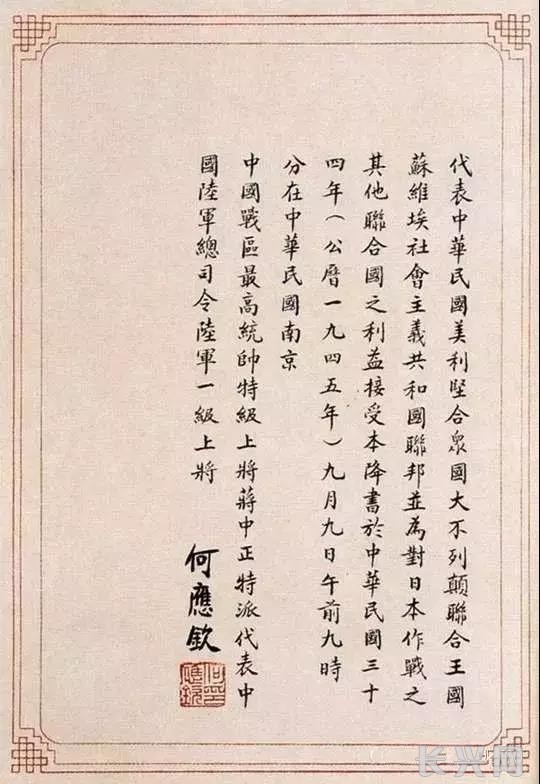 代表中華民國美利堅合衆國大不列顛聯合王國
蘇維埃社會主義共和國聯邦並為對日本作戰之
其他聯合國之利益接受本降書於中華民國三十
四年（公曆一九四五年）九月九日午前九時
分在中華民國南京
中國戰區最高統帥特級上將蔣中正特派代表中
國陸軍總司令陸軍一級上將
何應欽
何應欽印
长兴网